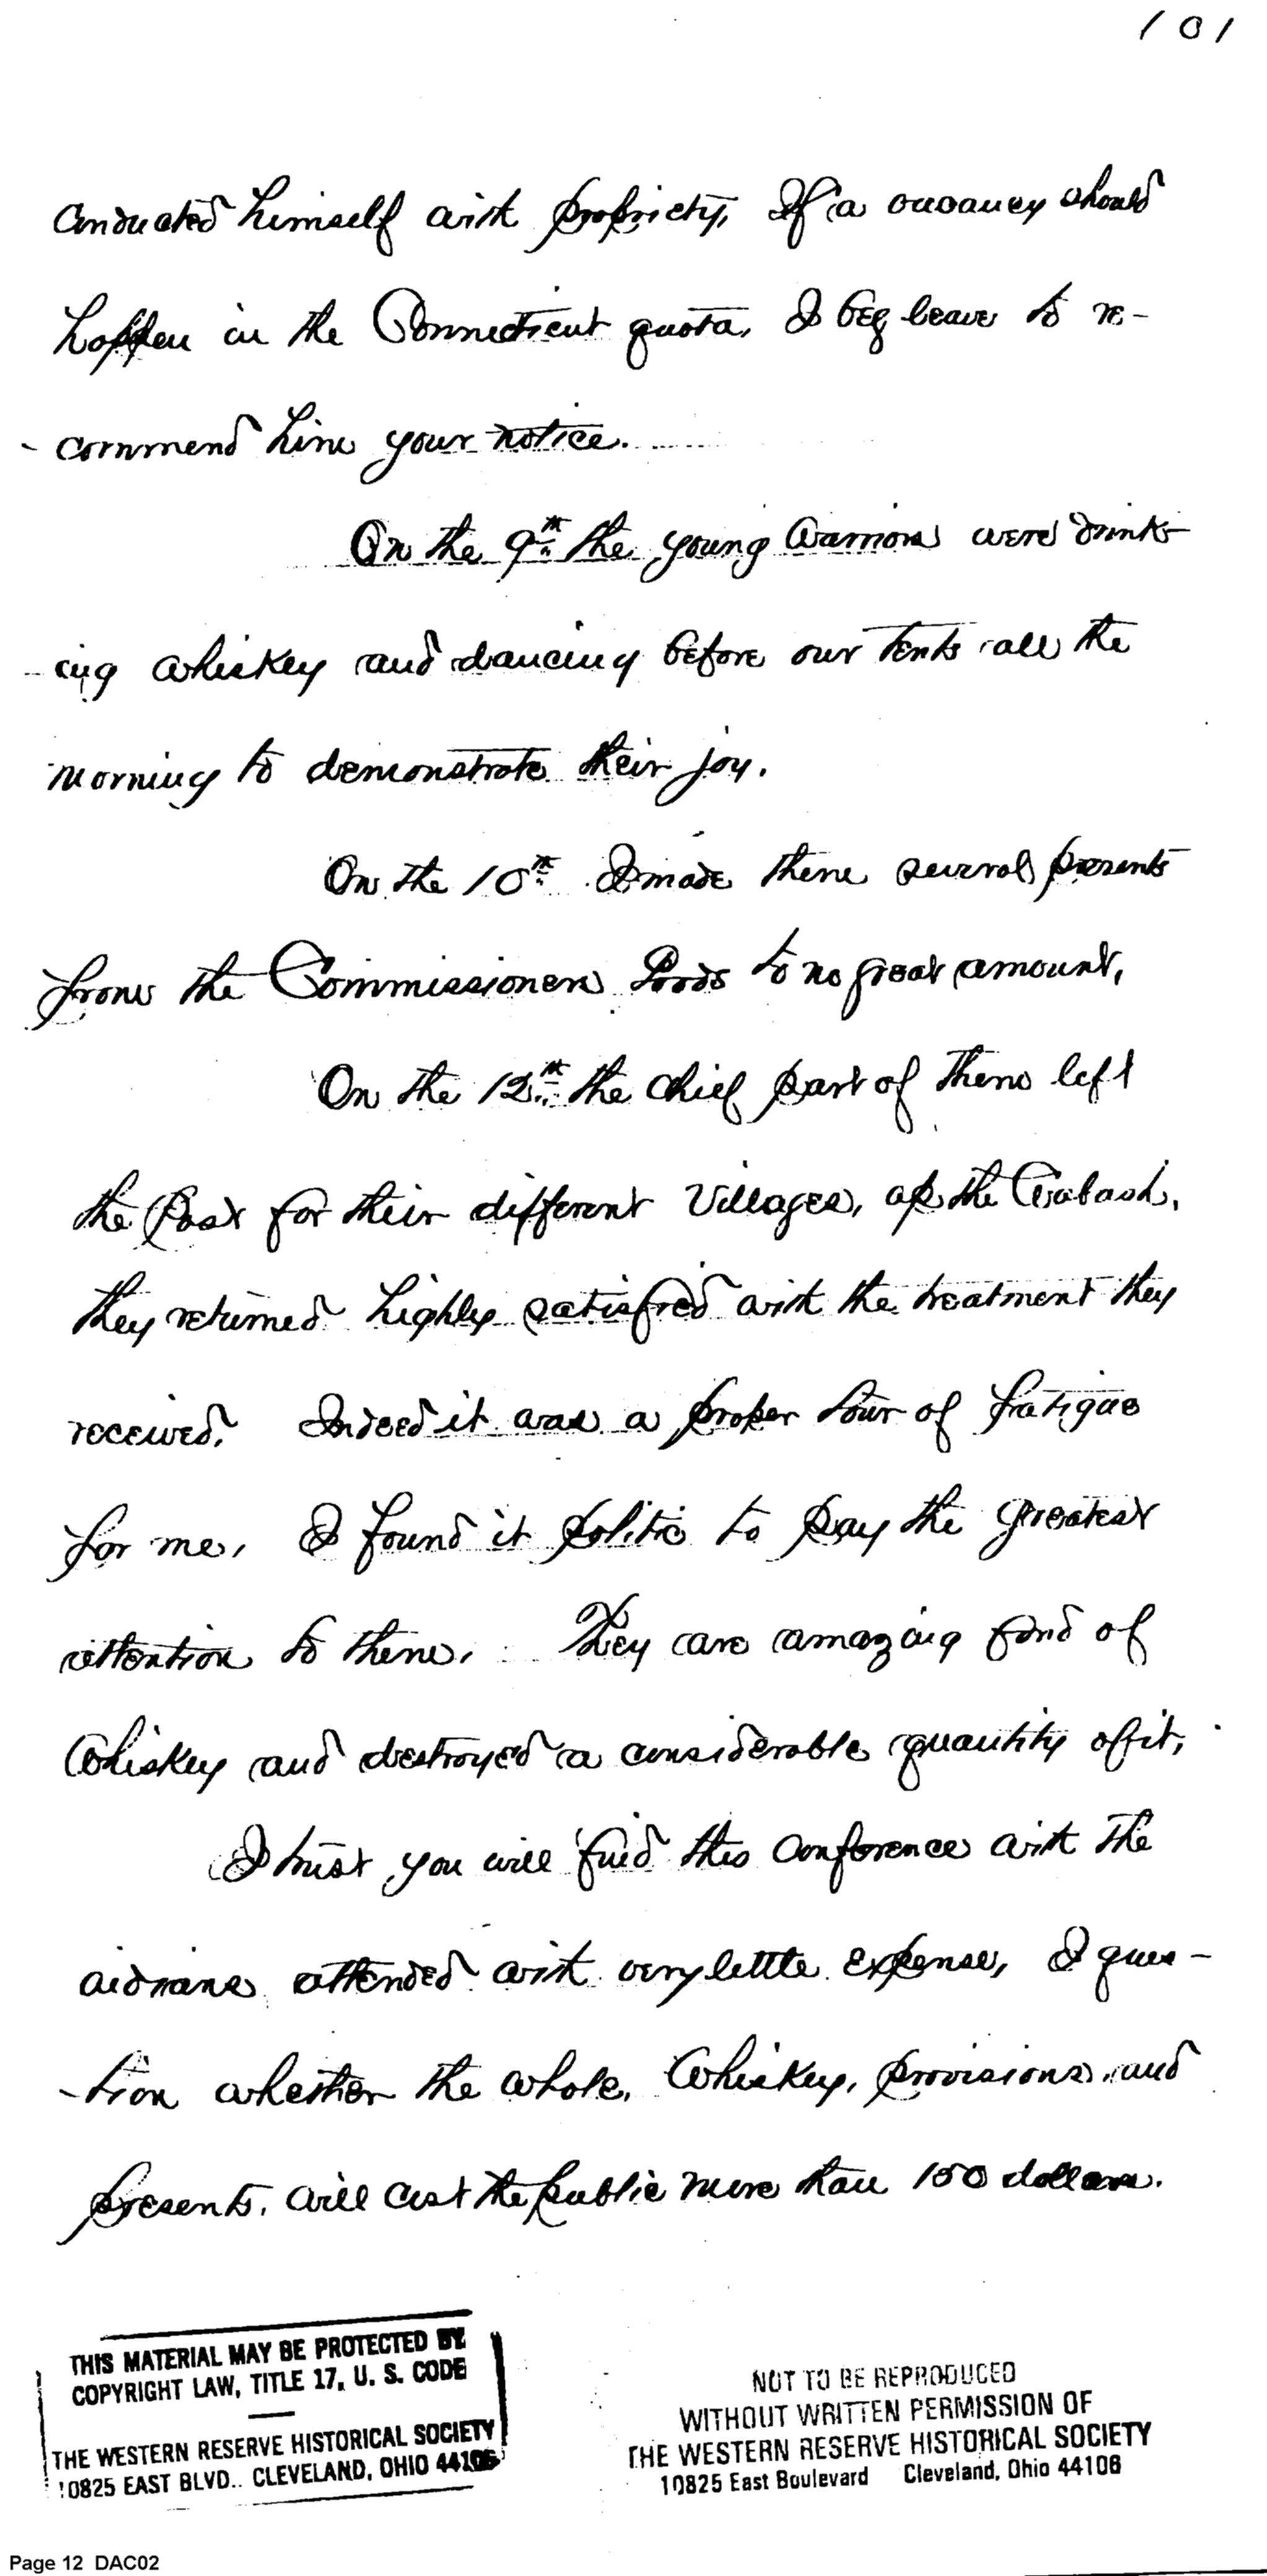 101
conducted himself with propriety, If a vacancy should
happen in the Connecticut quota, I beg leave to re-
-commend him your notice.
On the 9th the young Warriors were drink-
-ing whiskey and dancing before our tents all the
morning to demonstrate their joy.
On the 10th I made them several presents
from the Commissioners Goods to no great amount,
On the 12th the chief part of them left
the Post for their different Villages, up the Wabash,
they returned highly satisfied with the treatment they
received. Indeed it was a proper tour of fatigue
for me, I found it politic to pay the greatest
attention to them, They are amazing fond of
Whiskey and destroyed a considerable quantity of it,
I trust you will find this conference with the
indians attended with very little expense, I ques-
-tion whether the whole, Whiskey, provisions, and
presents, will cost the public more than 100 dollars.
THIS MATERIAL MAY BE PROTECTED BY
COPYRIGHT LAW, TITLE 17, U. S. CODE
THE WESTERN RESERVE HISTORICAL SOCIETY
10825 EAST BLVD.. CLEVELAND, OHIO 44106
NOT TO BE REPRODUCED
WITHOUT WRITTEN PERMISSION OF
THE WESTERN RESERVE HISTORICAL SOCIETY
10825 East Boulevard Cleveland, Ohio 44106
Page 12 DAC02